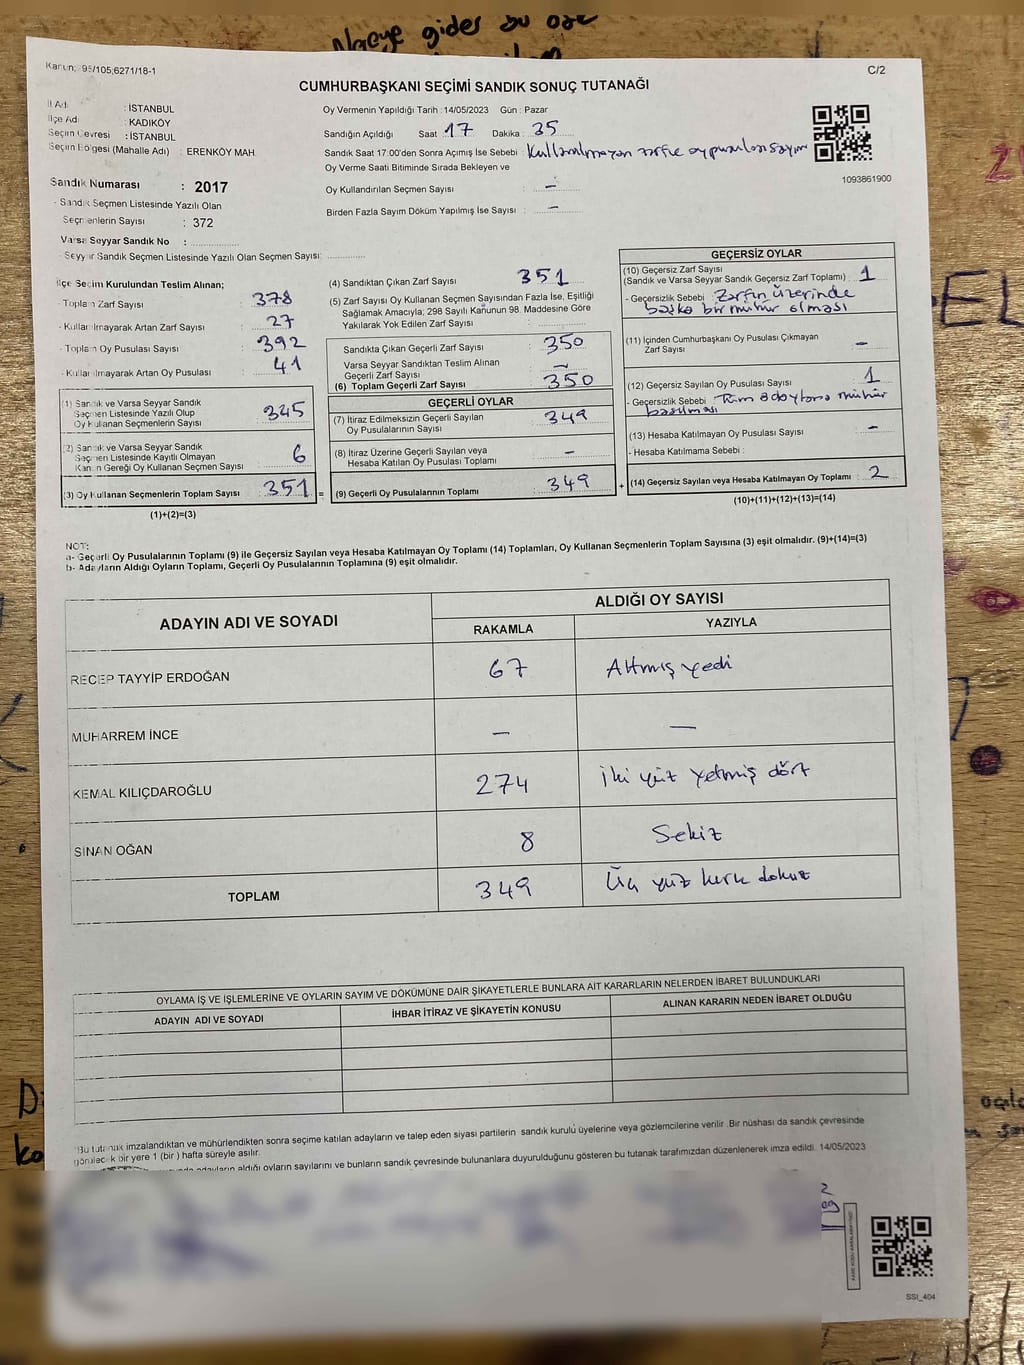 Nereye gider bu özel
Kanun; 95/105;6271/18-1
C/2
CUMHURBAŞKANI SEÇİMİ SANDIK SONUÇ TUTANAĞI
İl Adı : İSTANBUL
İlçe Adı : KADIKÖY
Seçim Çevresi : İSTANBUL
Seçim Bölgesi (Mahalle Adı) : ERENKÖY MAH.
Oy Vermenin Yapıldığı Tarih : 14/05/2023 Gün : Pazar
Sandığın Açıldığı Saat 17 Dakika : 35
Sandık Saat 17:00'den Sonra Açımış İse Sebebi : Kullanılmayan zarf ve oy pusulası sayımı
Oy Verme Saati Bitiminde Sırada Bekleyen ve
Oy Kullandırılan Seçmen Sayısı : –
Birden Fazla Sayım Döküm Yapılmış İse Sayısı : –
1093861900
Sandık Numarası : 2017
- Sandık Seçmen Listesinde Yazılı Olan
Seçmenlerin Sayısı : 372
Varsa Seyyar Sandık No :
- Seyyar Sandık Seçmen Listesinde Yazılı Olan Seçmen Sayısı:
İlçe Seçim Kurulundan Teslim Alınan;
- Toplam Zarf Sayısı : 378
- Kullanılmayarak Artan Zarf Sayısı : 27
- Toplam Oy Pusulası Sayısı : 392
- Kullanılmayarak Artan Oy Pusulası : 41
(1) Sandık ve Varsa Seyyar Sandık
Seçmen Listesinde Yazılı Olup
Oy Kullanan Seçmenlerin Sayısı : 345
(2) Sandık ve Varsa Seyyar Sandık
Seçmen Listesinde Kayıtlı Olmayan
Kanun Gereği Oy Kullanan Seçmen Sayısı : 6
(3) Oy Kullanan Seçmenlerin Toplam Sayısı : 351 =
(1)+(2)=(3)
(4) Sandıktan Çıkan Zarf Sayısı : 351
(5) Zarf Sayısı Oy Kullanan Seçmen Sayısından Fazla İse, Eşitliği
Sağlamak Amacıyla; 298 Sayılı Kanunun 98. Maddesine Göre
Yakılarak Yok Edilen Zarf Sayısı :
Sandıkta Çıkan Geçerli Zarf Sayısı : 350
Varsa Seyyar Sandıktan Teslim Alınan
Geçerli Zarf Sayısı : –
(6) Toplam Geçerli Zarf Sayısı : 350
GEÇERLİ OYLAR
(7) İtiraz Edilmeksizin Geçerli Sayılan
Oy Pusulalarının Sayısı : 349
(8) İtiraz Üzerine Geçerli Sayılan veya
Hesaba Katılan Oy Pusulası Toplamı : –
(9) Geçerli Oy Pusulalarının Toplamı : 349 +
GEÇERSİZ OYLAR
(10) Geçersiz Zarf Sayısı
(Sandık ve Varsa Seyyar Sandık Geçersiz Zarf Toplamı) : 1
- Geçersizlik Sebebi : Zarfın üzerinde
başka bir mühür olması
(11) İçinden Cumhurbaşkanı Oy Pusulası Çıkmayan
Zarf Sayısı : –
(12) Geçersiz Sayılan Oy Pusulası Sayısı : 1
- Geçersizlik Sebebi : Tüm adaylara mühür
basılması
(13) Hesaba Katılmayan Oy Pusulası Sayısı : –
- Hesaba Katılmama Sebebi :
(14) Geçersiz Sayılan veya Hesaba Katılmayan Oy Toplamı : 2
(10)+(11)+(12)+(13)=(14)
NOT:
a- Geçerli Oy Pusulalarının Toplamı (9) ile Geçersiz Sayılan veya Hesaba Katılmayan Oy Toplamı (14) Toplamları, Oy Kullanan Seçmenlerin Toplam Sayısına (3) eşit olmalıdır. (9)+(14)=(3)
b- Adayların Aldığı Oyların Toplamı, Geçerli Oy Pusulalarının Toplamına (9) eşit olmalıdır.
ADAYIN ADI VE SOYADI
ALDIĞI OY SAYISI
RAKAMLA YAZIYLA
RECEP TAYYİP ERDOĞAN 67 Altmış yedi
MUHARREM İNCE – –
KEMAL KILIÇDAROĞLU 274 İki yüz yetmiş dört
SİNAN OĞAN 8 Sekiz
TOPLAM 349 Üç yüz kırk dokuz
OYLAMA İŞ VE İŞLEMLERİNE VE OYLARIN SAYIM VE DÖKÜMÜNE DAİR ŞİKAYETLERLE BUNLARA AİT KARARLARIN NELERDEN İBARET BULUNDUKLARI
ADAYIN ADI VE SOYADI İHBAR İTİRAZ VE ŞİKAYETİN KONUSU ALINAN KARARIN NEDEN İBARET OLDUĞU
Bu tutanak imzalandıktan ve mühürlendikten sonra seçime katılan adayların ve talep eden siyasi partilerin sandık kurulu üyelerine veya gözlemcilerine verilir. Bir nüshası da sandık çevresinde
görülecek bir yere 1 (bir ) hafta süreyle asılır.
adayların aldığı oyların sayılarını ve bunların sandık çevresinde bulunanlara duyurulduğunu gösteren bu tutanak tarafımızdan düzenlenerek imza edildi. 14/05/2023
SSI_404